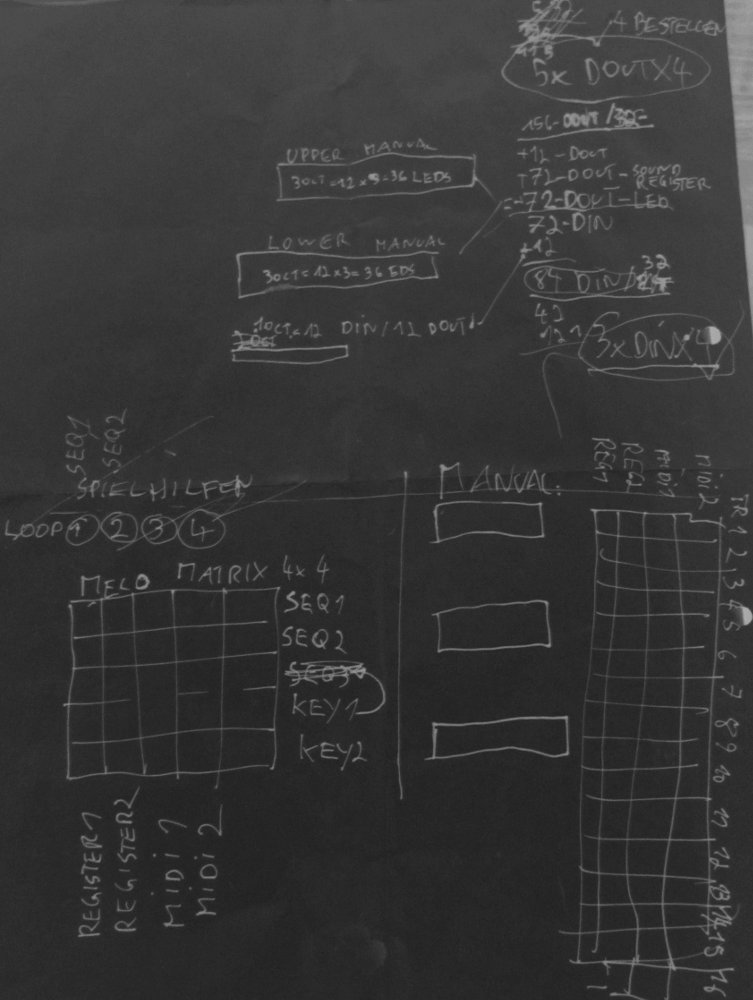 4 BESTELLEN
5x DOUTX4
156-DOUT/32=
+12-DOUT
+72-DOUT-SOUND
REGISTER
=-72-DOUT-LED
72-DIN
+12
32
84 DIN/
42
3xDINX4
UPPER MANUAL
3OCT=12x3=36 LEDS
LOWER MANUAL
3OCT=12x3=36 EDS
1OCT=12 DIN/12 DOUT
SEQ1
SEQ2
SPIELHILFEN
LOOP 1 2 3 4
MELO MATRIX 4x4
SEQ1
SEQ2
SEQ3
KEY1
KEY2
REGISTER1
REGISTER2
MIDI 1
MIDI 2
MANUAL:
REG1
REG2
MIDI1
MIDI2
TR1 2 3 4 5 6 7 8 9 10 11 12 13 14 15 16